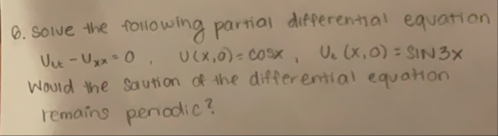 Q. Solve the following partial differential equation
U_tt - U_xx = 0 , U(x,0) = cosx , U_t (x,0) = SIN 3x
Would the Saution of the differential equation
remains periodic?